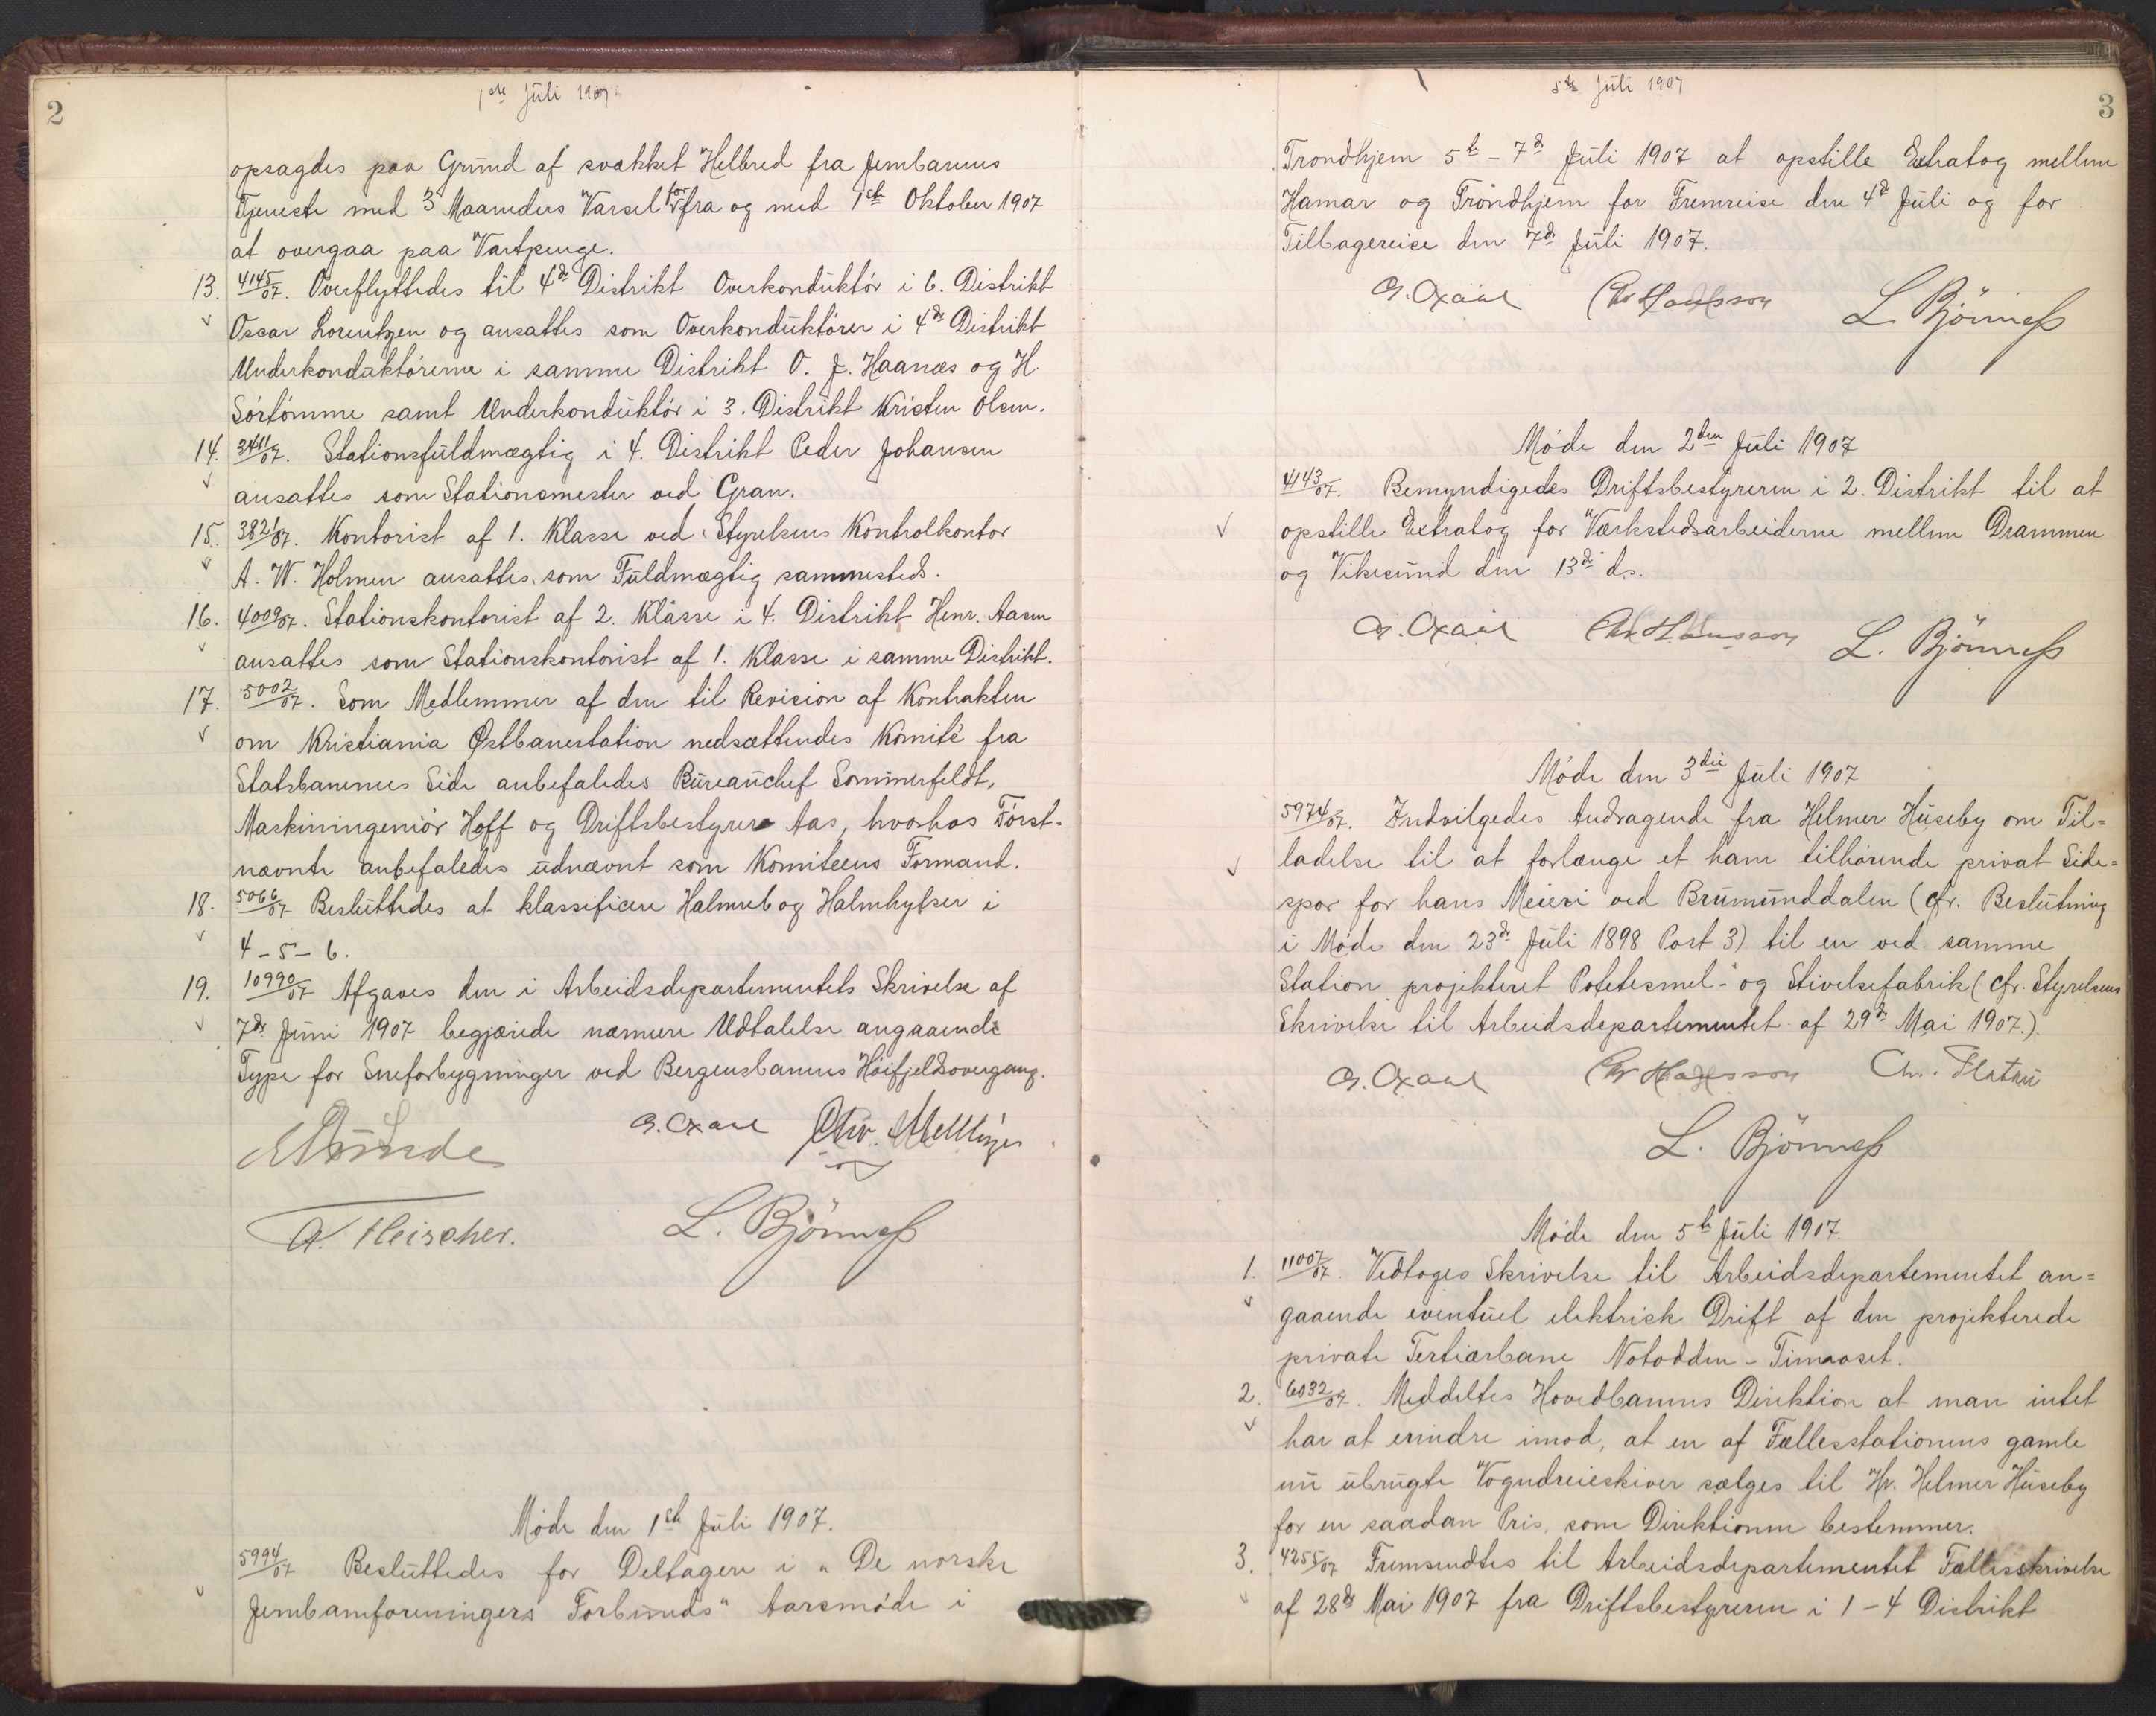 2
1ste Juli 1907.
opsagdes paa Grund af svækket Helbred fra Jernbanens
Tjeneste med 3 Maaneders Varsel for fra og med 1ste Oktober 1907
at overgaa paa Vartpenge.
13. 4145/07. Overflyttedes til 4de Distrikt Overkonduktör i 6. Distrikt
Oscar Lorentzen og ansattes som Overkonduktörer i 4de Distrikt
Underkonduktörerne i samme Distrikt O. J. Haanæs og H.
Sörtömme samt Underkonduktör i 3. Distrikt Kristen Olsen.
14. 3411/07. Stationsfuldmægtig i 4. Distrikt Peder Johansen
ansattes som Stationsmester ved Gran.
15. 3821/07. Kontorist af 1. Klasse ved Styrelsens Kontrolkontor
A. W. Holmen ansattes som Fuldmægtig sammesteds.
16. 4009/07. Stationskontorist af 2. Klasse i 4. Distrikt Henr. Aasen
ansattes som Stationskontorist af 1. Klasse i samme Distrikt.
17. 5002/07. Som Medlemmer af den til Revision af Kontrakten
om Kristiania Østbanestation nedsættendes Komité fra
Statsbanernes Side anbefaledes Bureauchef Sommerfeldt,
Maskiningeniör Hoff og Driftsbestyrer Aas, hvorhos Först-
nævnte anbefaledes udnævnt som Komiteens Formand.
18. 5066/07 Besluttedes at klassificere Halmreb og Halmhylser i
4-5-6.
19. 10990/07 Afgaves den i Arbeidsdepartementets Skrivelse af
7de Juni 1907 begjærede nærmere Udtalelse angaaende
Type for Sneforbygninger ved Bergensbanens Höifjeldsovergang.
G. Oxaal
A. Fleischer.
L. Björness
Möde den 1ste Juli 1907.
5994/07 Besluttedes for Deltagere i "De norske
Jernbaneforeningers Forbunds" Aarsmöde i
5te Juli 1907
3
Trondhjem 5te - 7de Juli 1907 at opstille Extratog mellem
Hamar og Trondhjem for Fremreise den 4de Juli og for
Tilbagereise den 7de Juli 1907.
G. Oxaal
L. Björness
Möde den 2den Juli 1907
4143/07. Bemyndigedes Driftsbestyreren i 2. Distrikt til at
opstille Extratog for Værkstedsarbeiderne mellem Drammen
og Vikesund den 13de ds.
G. Oxaal
L. Björness
Möde den 3die Juli 1907
5974/07. Indvilgedes Andragende fra Helmer Huseby om Til=
ladelse til at forlænge et ham tilhörende privat Side=
spor for hans Meieri ved Brumunddalen (cfr. Beslutning
i Möde den 23de Juli 1898 Post 3) til en ved samme
Station projekteret Potetesmel- og Stivelsefabrik (cfr. Styrelsens
Skrivelse til Arbeidsdepartementet af 29de Mai 1907.).
G. Oxaal
Chr. Platou
L. Björness
Möde den 5te Juli 1907.
1. 11007/07. Vedtoges Skrivelse til Arbeidsdepartementet an=
gaaende eventuel elektrisk Drift af den projekterede
private Tertiærbane Notodden - Tinnoset.
2. 6032/07. Meddeltes Hovedbanens Direktion at man intet
har at erindre imod, at en af Fællesstationens gamle
nu ubrugte Vogndreieskiver sælges til Hr. Helmer Huseby
for en saadan Pris, som Direktionen bestemmer.
3. 4255/07 Fremsendtes til Arbeidsdepartementet Fællesskrivelse
af 28de Mai 1907 fra Driftsbestyreren i 1-4 Distrikt